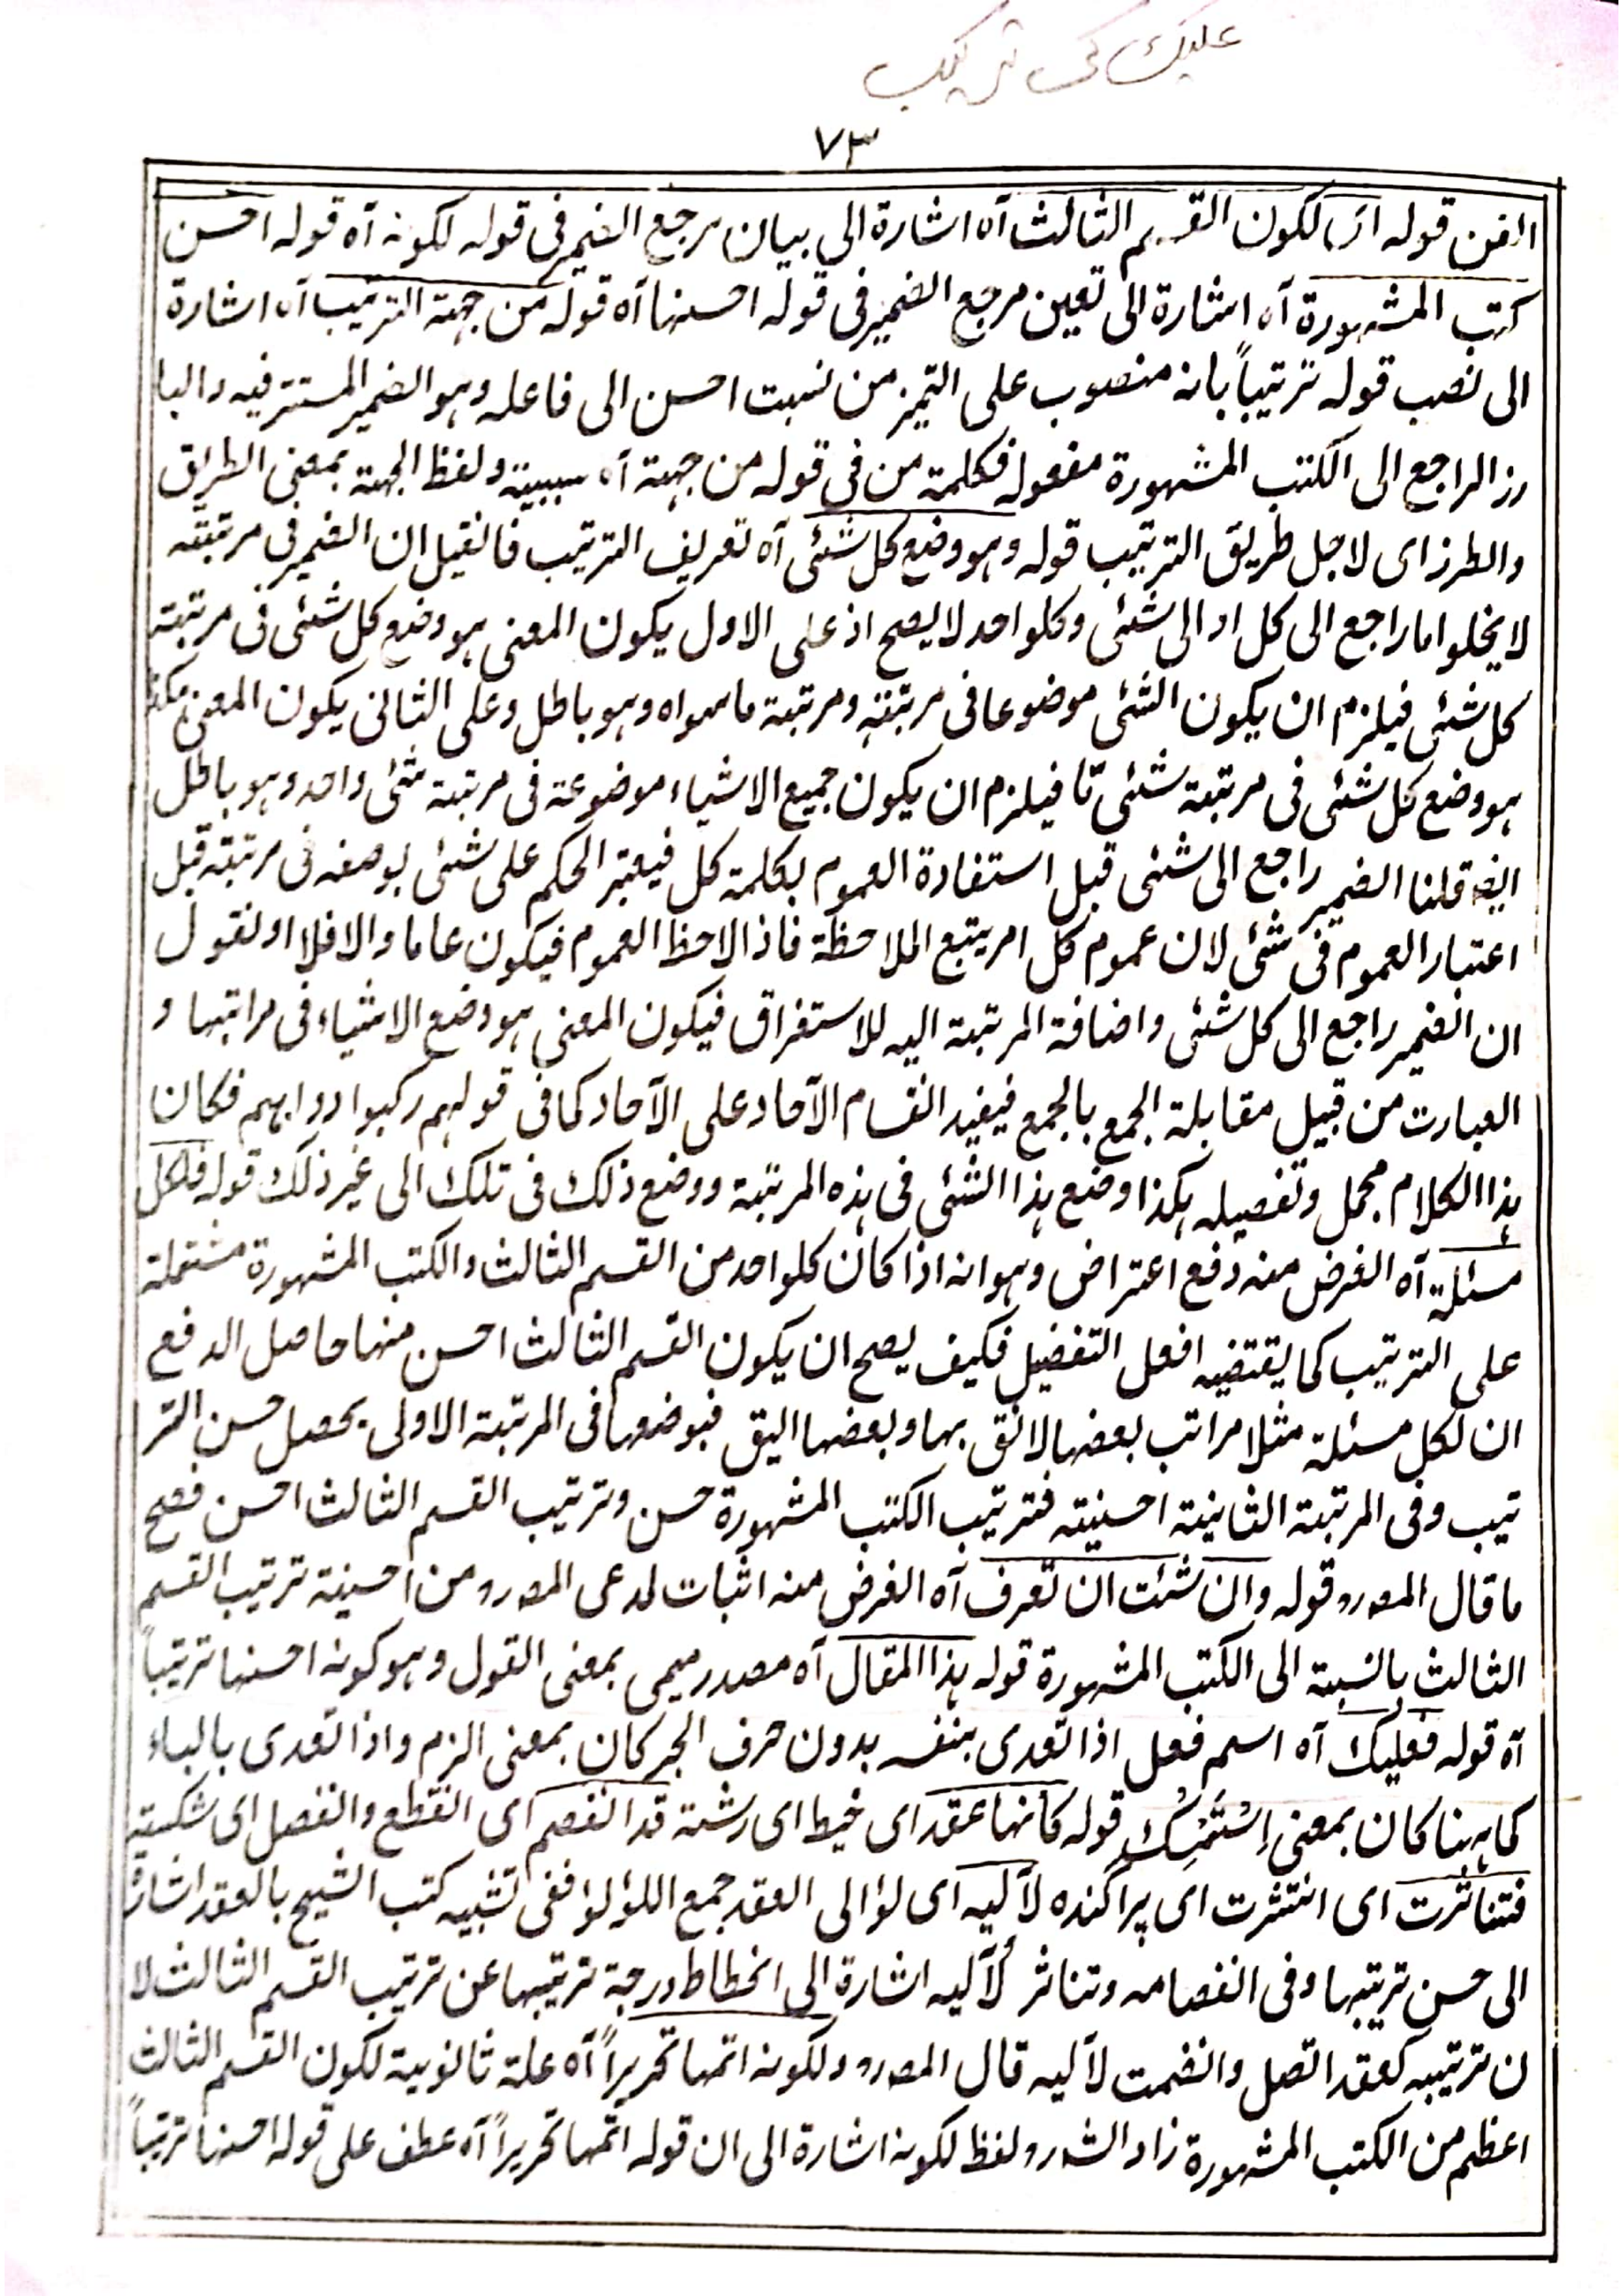 علیک کی ترکیب
۷۳
الفن قوله ای لکون القسم الثالث آه اشارة الی بیان مرجع الضمیر فی قوله لکونه آه قوله احسن
کتب المشهورة آه اشارة الی تعین مرجع الضمیر فی قوله احسنها آه قوله من جهة الترتیب آه اشارة
الی نصب قوله ترتیباً بانه منصوب علی التمیز من نسبت احسن الی فاعله وهو الضمیر المستتر فیه والبا
رز الراجع الی الکتب المشهورة مفعوله فکلمة من فی قوله من جهة آه سببیة ولفظ الجهة بمعنی الطریق
والطرز ای لاجل طریق الترتیب قوله وهو وضع کل شئی آه تعریف الترتیب فانقیل ان الضمیر فی مرتبته
لا یخلو اما راجع الی کل او الی شئی وکلواحد لا یصح اذ علی الاول یکون المعنی هو وضع کل شئی فی مرتبة
کل شئی فیلزم ان یکون الشئی موضوعا فی مرتبته ومرتبة ما سواه وهو باطل وعلی الثانی یکون المعنی هکذا
هو وضع کل شئی فی مرتبة شئی ما فیلزم ان یکون جمیع الاشیاء موضوعة فی مرتبة شئی واحد وهو باطل
ایضا قلنا الضمیر راجع الی شئی قبل استفادة العموم بکلمة کل فیعتبر الحکم علی شئی بوصفه فی مرتبته قبل
اعتبار العموم فی شئی لان عموم کل امر یتبع الملاحظة فاذا لاحظ العموم فیکون عاما والا فلا او نقول
ان الضمیر راجع الی کل شئی واضافة المرتبة الیه للاستغراق فیکون المعنی هو وضع الاشیاء فی مراتبها و
العبارت من قبیل مقابلة الجمع بالجمع فیفید انقسام الآحاد علی الآحاد کما فی قولهم رکبوا دوابهم فکان
هذا الکلام مجمل وتفصیله هکذا وضع هذا الشئی فی هذه المرتبة ووضع ذلک فی تلک الی غیر ذلک قوله فلکل
مسئلة آه الغرض منه دفع اعتراض وهو انه اذا کان کلواحد من القسم الثالث والکتب المشهورة مشتملة
علی الترتیب کما یقتضیه افعل التفضیل فکیف یصح ان یکون القسم الثالث احسن منها حاصل الدفع
ان لکل مسئلة مثلا مراتب بعضها لائق بها وبعضها الیق فبوضعها فی المرتبة الاولی یحصل حسن التر
تیب وفی المرتبة الثانیة احسنیته فترتیب الکتب المشهورة حسن وترتیب القسم الثالث احسن فصح
ما قال المصرو قوله وان شئت ان تعرف آه الغرض منه اثبات لمدعی المصرو من احسنیة ترتیب القسم
الثالث بالنسبة الی الکتب المشهورة قوله هذا المقال آه مصدر میمی بمعنی القول وهو کونه احسنها ترتیباً
آه قوله فعلیک آه اسم فعل اذا تعدی بنفسه بدون حرف الجر کان بمعنی الزم واذا تعدی بالباء
کما ههنا کان بمعنی اِسْتَمْسِکْ قوله کانها عقد ای خیط ای رشته قد انفصم ای انقطع وانفصل ای شکسته
فتناثرت ای انتثرت ای پراکنده لآلیه ای لؤالی العقد جمع اللؤلؤ ففی تشبیه کتب الشیخ بالعقد اشارة
الی حسن ترتیبها وفی انفصامه وتناثر لآلیه اشارة الی انحطاط درجة ترتیبها عن ترتیب القسم الثالث لا
ن ترتیبه کعقد اتصل وانضمت لآلیه قال المصرو ولکونه اتمها تحریراً آه علة ثانویة لکون القسم الثالث
اعظم من الکتب المشهورة زاد الشرو لفظ لکونه اشارة الی ان قوله اتمها تحریراً آه عطف علی قوله احسنها ترتیباً